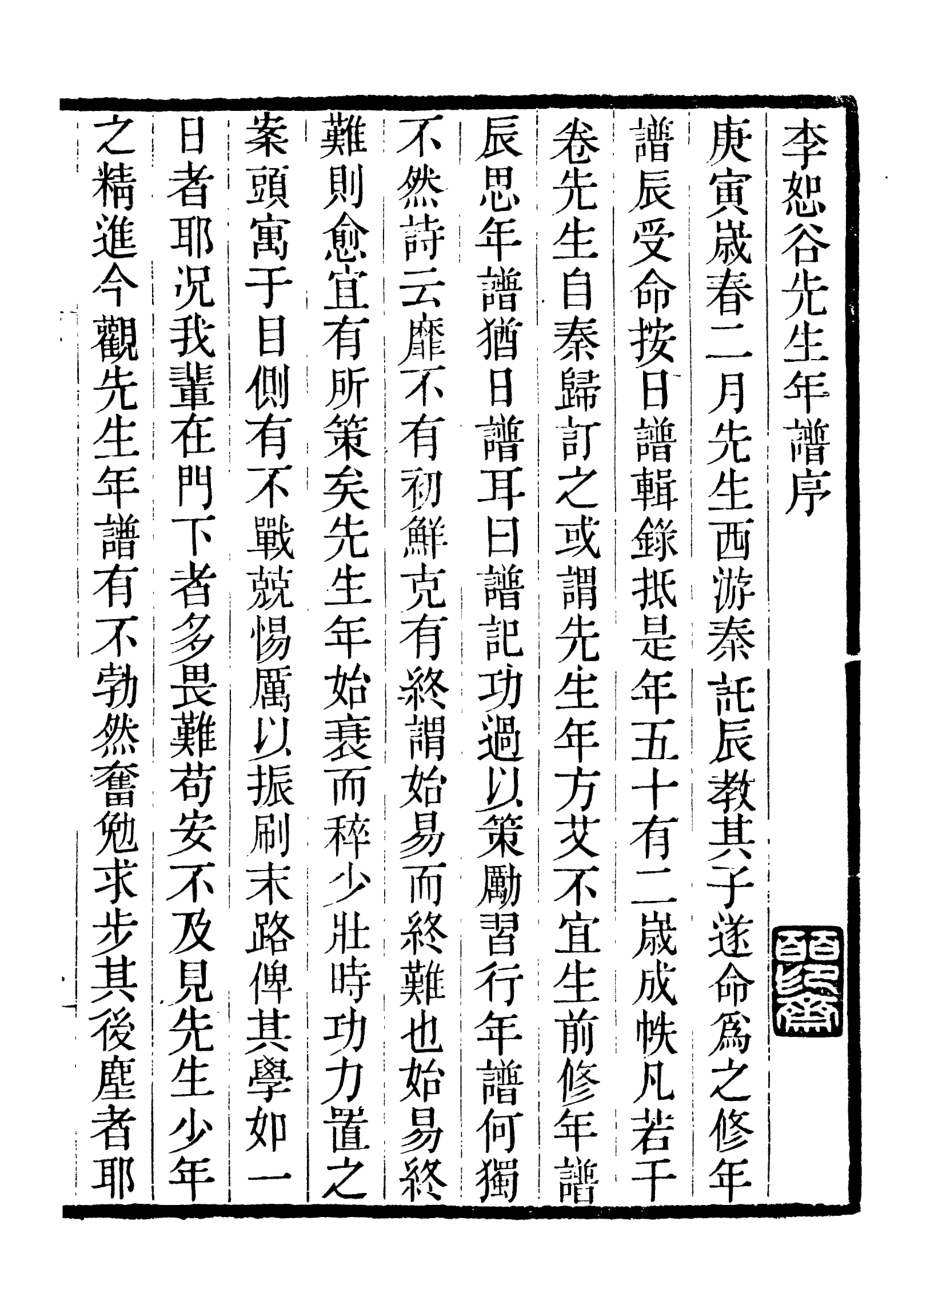 李恕谷先生年譜序
庚寅歲春二月先生西游秦託辰教其子遂命爲之修年
譜辰受命按日譜輯錄抵是年五十有二歲成帙凡若干
卷先生自秦歸訂之或謂先生年方艾不宜生前修年譜
辰思年譜猶日譜耳日譜記功過以策勵習行年譜何獨
不然詩云靡不有初鮮克有終謂始易而終難也始易終
難則愈宜有所策矣先生年始衰而稡少壯時功力置之
案頭寓于目側有不戰兢惕厲以振刷末路俾其學如一
日者耶况我輩在門下者多畏難苟安不及見先生少年
之精進今觀先生年譜有不勃然奮勉求步其後塵者耶